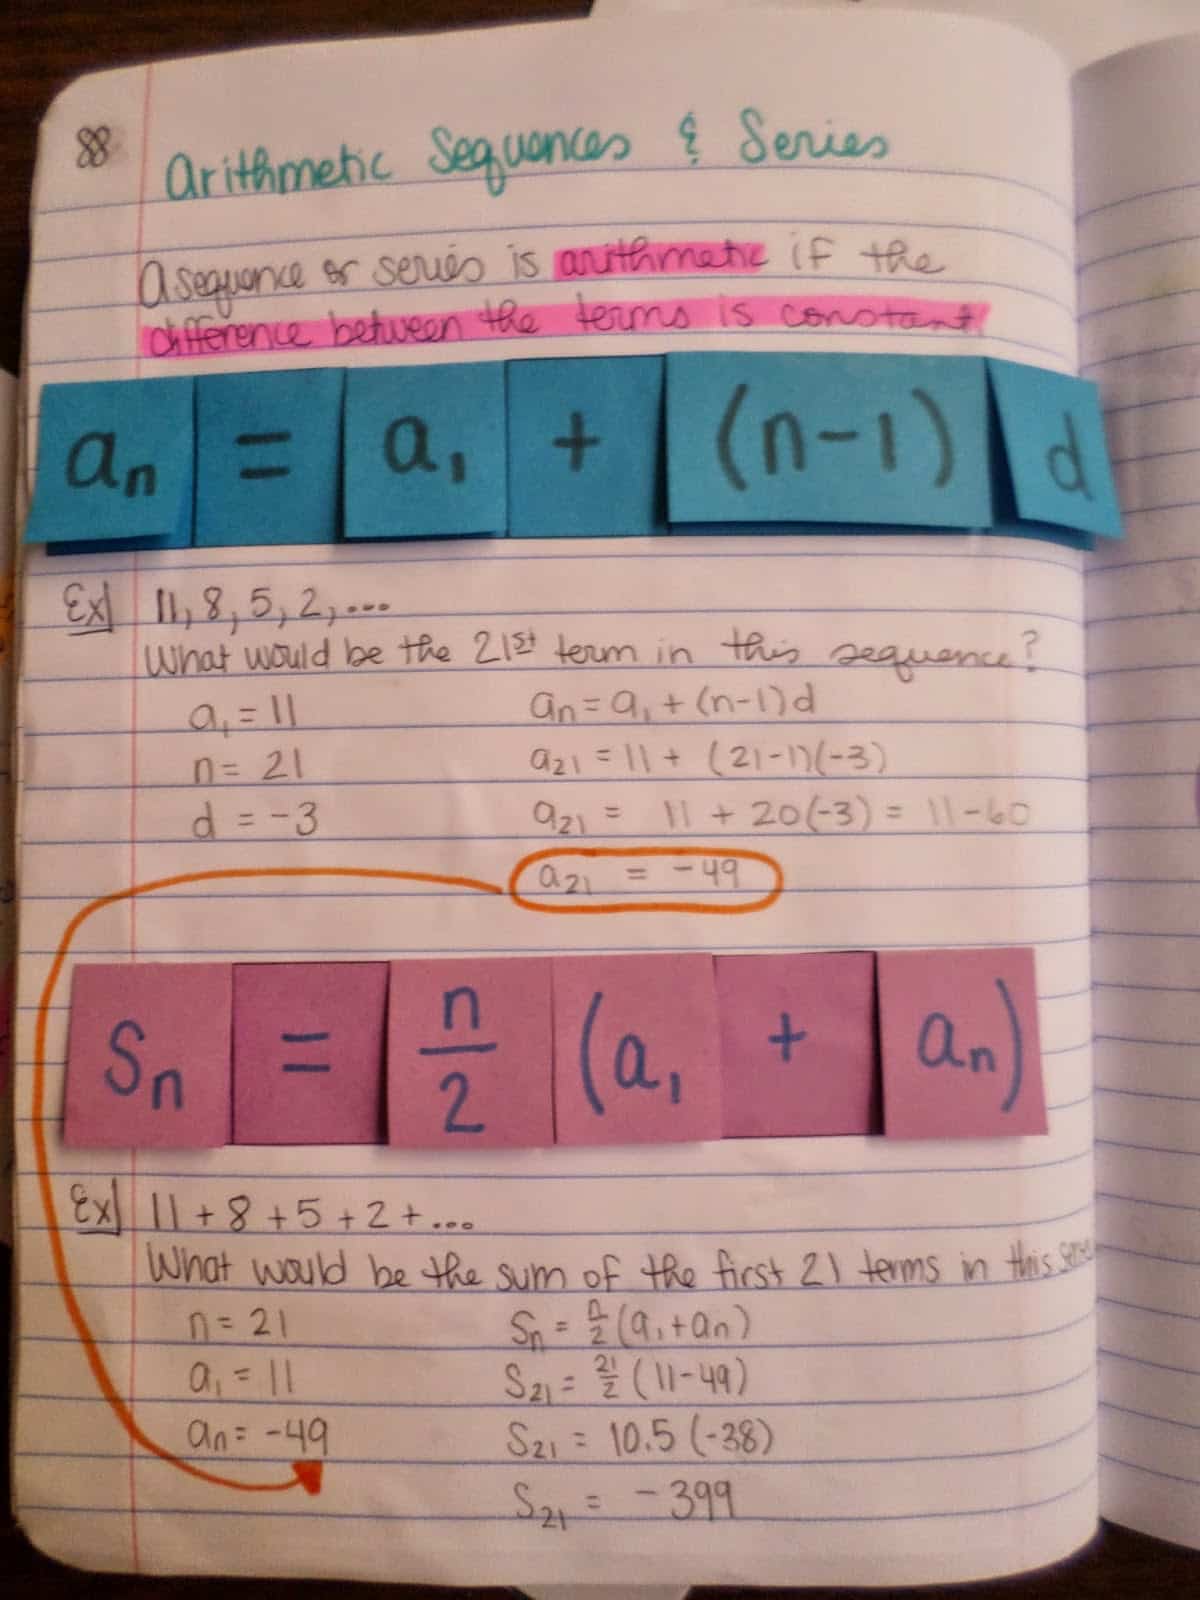 88
Arithmetic Sequences & Series
A sequence or series is arithmetic if the
difference between the terms is constant!
aₙ = a₁ + (n-1) d
Ex 11, 8, 5, 2, ...
What would be the 21st term in this sequence?
a₁ = 11 aₙ = a₁ + (n-1)d
n = 21 a₂₁ = 11 + (21-1)(-3)
d = -3 a₂₁ = 11 + 20(-3) = 11-60
a₂₁ = -49
Sₙ = n/2 (a₁ + aₙ)
Ex 11 + 8 + 5 + 2 + ...
What would be the sum of the first 21 terms in this
n = 21 Sₙ = n/2 (a₁+aₙ)
a₁ = 11 S₂₁ = 21/2 (11-49)
aₙ = -49 S₂₁ = 10.5 (-38)
S₂₁ = -399